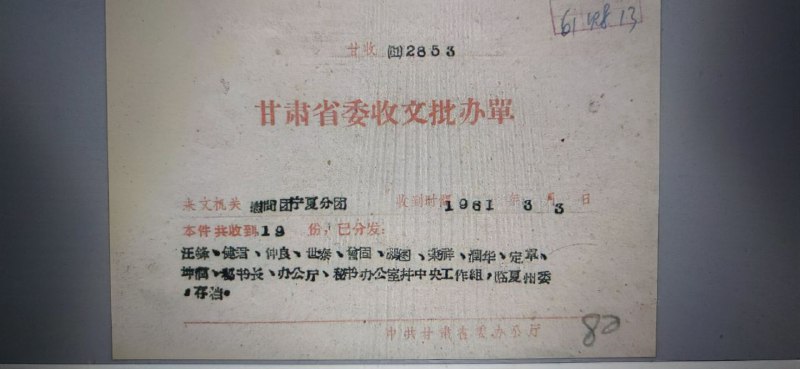 甘收 2853
甘肃省委收文批办單
来文机关 慰问团宁夏分团 收到时间 1961 年 3 月 3 日
本件共收到 19 份,已分发:
汪锋、健君、仲良、世泰、曾固、 、秉祥、润华、定军、
坤润、秘书长、办公厅、秘书办公室并中央工作组,临夏州委
,存档。
中共甘肃省委办公厅